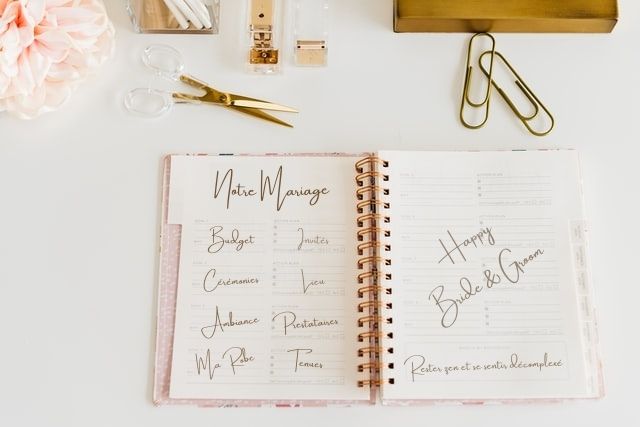 Notre Mariage
Budget
Invités
Cérémonies
Lieu
Ambiance
Prestataires
Ma Robe
Tenues
Happy
Bride & Groom
Rester zen et se sentis décomplexé